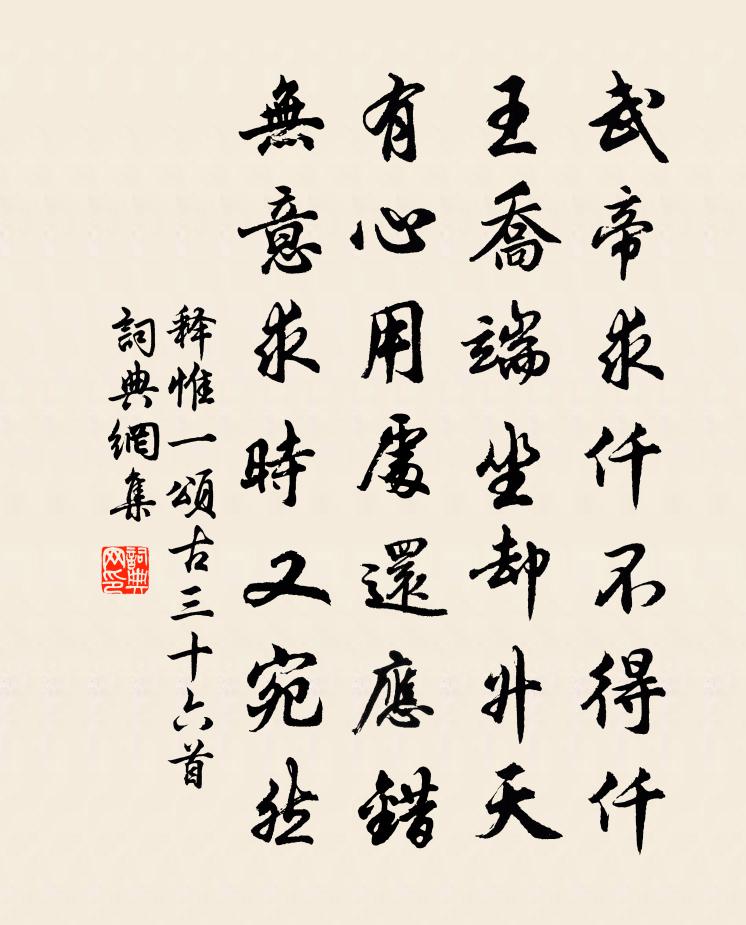 武帝求仟不得仟
王喬端坐却升天
有心用處還應錯
無意求時又宛然
释惟一頌古三十六首
詞典網集
詞典网印